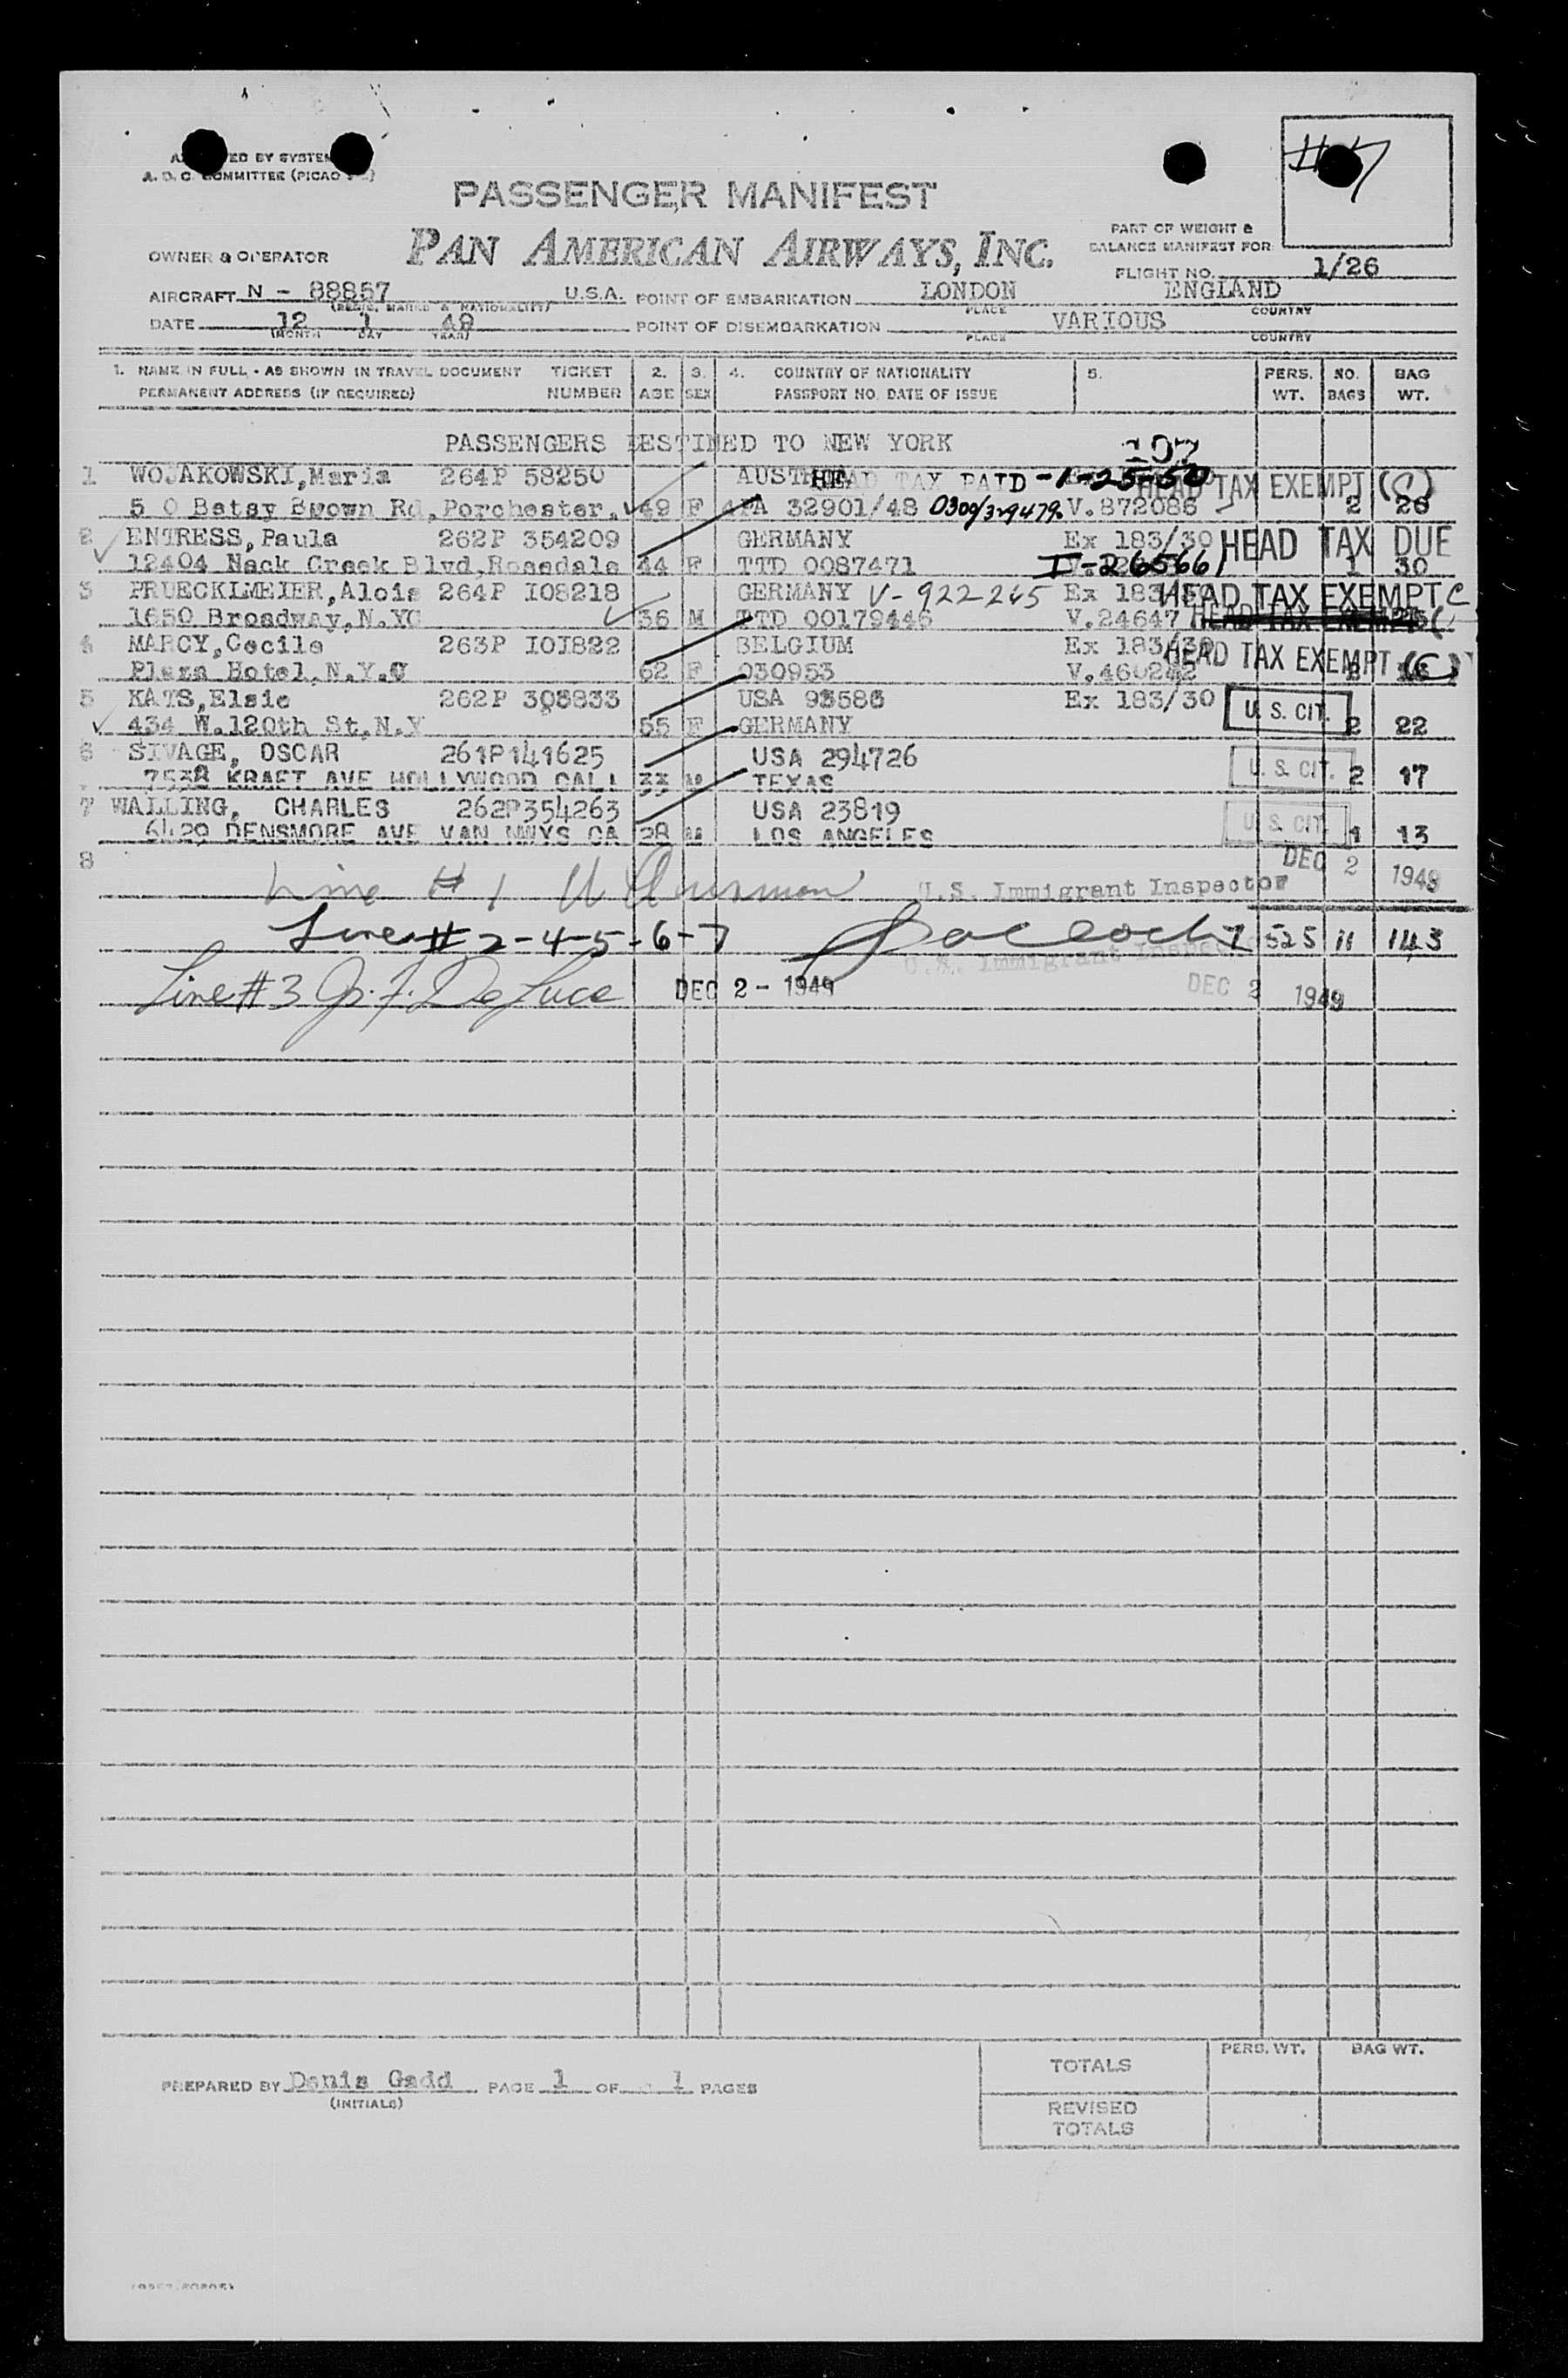 ED BY SYSTEM
A. D. C. COMMITTEE (PICAO
#7
PASSENGER MANIFEST
PART OF WEIGHT &
BALANCE MANIFEST FOR
OWNER & OPERATOR PAN AMERICAN AIRWAYS, INC.
FLIGHT NO. 1/26
AIRCRAFT N - 88857 U.S.A. POINT OF EMBARKATION LONDON ENGLAND
(REGIS. MARKS & NATIONALITY) PLACE COUNTRY
DATE 12 1 49 POINT OF DISEMBARKATION VARIOUS
(MONTH DAY YEAR) PLACE COUNTRY
1. NAME IN FULL - AS SHOWN IN TRAVEL DOCUMENT TICKET 2. 3. 4. COUNTRY OF NATIONALITY 5. PERS. NO. BAG
PERMANENT ADDRESS (IF REQUIRED) NUMBER AGE SEX PASSPORT NO. DATE OF ISSUE WT. BAGS WT.
PASSENGERS DESTINED TO NEW YORK
1 WOJAKOWSKI, Maria 264P 58250 HEAD TAX PAID -1-25-50 HEAD TAX EXEMPT (C)
5 0 Betsy Brown Rd, Porchester, 49 F 32901/48 V.872086 2 26
2 ENTRESS, Paula 262P 354209 GERMANY Ex 183/30 HEAD TAX DUE
12404 Nack Creek Blvd, Rosedale 44 F TTD 0087471 I-265661 1 30
3 PRUECKLMEIER, Alois 264P I08218 GERMANY V-922265 Ex 183/30 HEAD TAX EXEMPT C
1650 Broadway, N.YC 36 M TTD 00179446 V.24647 HEAD TAX EXEMPT
4 MARCY, Cecile 263P I0I822 BELGIUM Ex 183/30 HEAD TAX EXEMPT (C)
Plaza Hotel, N.Y.C 62 F 030953 V.460242
5 KATS, Elsie 262P 303833 USA 93586 Ex 183/30 U. S. CIT.
434 W.120th St, N.Y 55 F GERMANY 2 22
6 SIVAGE, OSCAR 261P141625 USA 294726 U. S. CIT.
7538 KRAFT AVE HOLLYWOOD CALI 33 M TEXAS 2 17
7 WALLING, CHARLES 262P354263 USA 23819 U. S. CIT.
6429 DENSMORE AVE VAN NUYS CA 28 M LOS ANGELES 1 13
8 DEC 2 1949
Line # 1 U.S. Immigrant Inspector
Line # 2-4-5-6-7 7 525 11 143
U.S. Immigrant Inspector
Line #3 G. F. DeLuca DEC 2 - 1949 DEC 2 1949
PREPARED BY Denis Gadd PAGE 1 OF 1 PAGES
(INITIALS)
PERS. WT. BAG WT.
TOTALS
REVISED
TOTALS